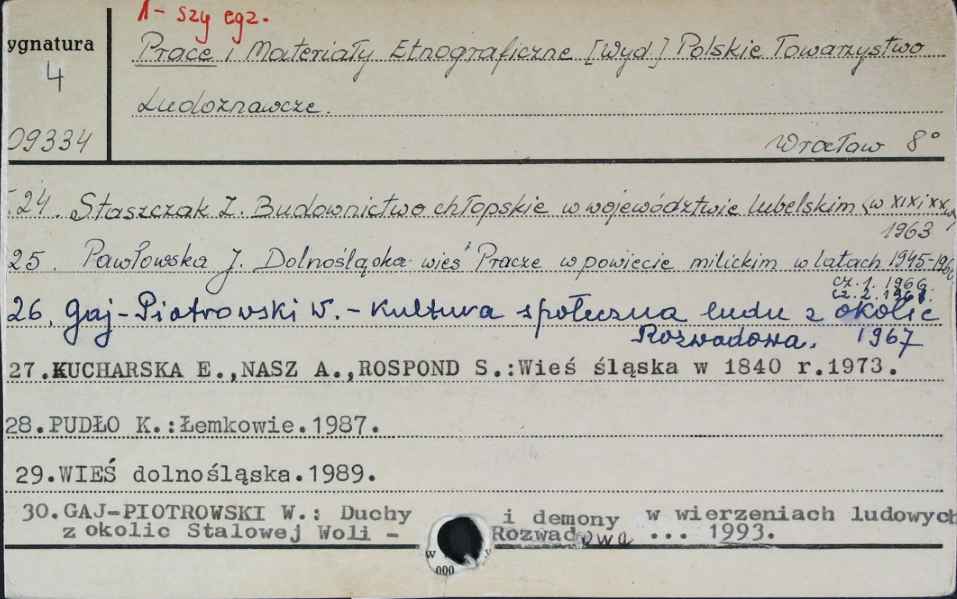 1-szy egz.
ygnatura
4
09334
Prace i Materiały Etnograficzne [Wyd] Polskie Towarzystwo
Ludoznawcze.
Wrocław 8°
24. Staszczak Z. Budownictwo chłopskie w województwie lubelskim (w XIX i XX w)
1963
25. Pawłowska J. Dolnośląska wieś Pracze w powiecie milickim w latach 1945-196
cz. 1. 1966.
cz. 2. 1968.
26. Gaj-Piotrowski W. - Kultura społeczna ludu z okolic
Rozwadowa. 1967
27.KUCHARSKA E.,NASZ A.,ROSPOND S.:Wieś śląska w 1840 r.1973.
28.PUDŁO K.:Łemkowie.1987.
29.WIEŚ dolnośląska.1989.
30.GAJ-PIOTROWSKI W.: Duchy i demony w wierzeniach ludowych
z okolic Stalowej Woli - Rozwadowa ... 1993.
W
000